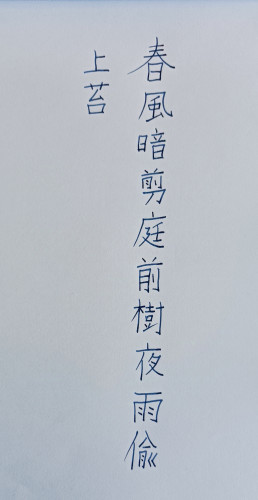 春風暗剪庭前樹夜雨偸
上苔